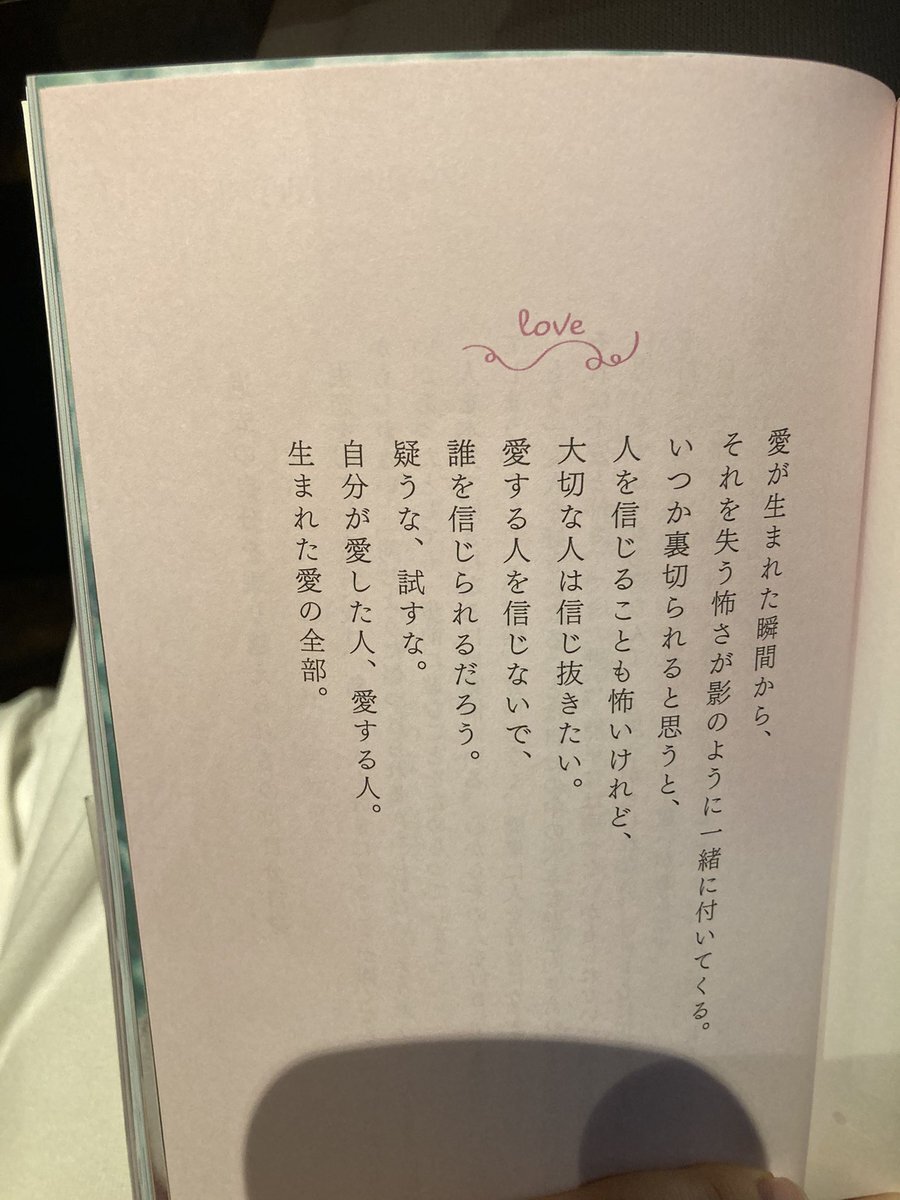 love
愛が生まれた瞬間から、
それを失う怖さが影のように一緒に付いてくる。
いつか裏切られると思うと、
人を信じることも怖いけれど、
大切な人は信じ抜きたい。
愛する人を信じないで、
誰を信じられるだろう。
疑うな、試すな。
自分が愛した人、愛する人。
生まれた愛の全部。